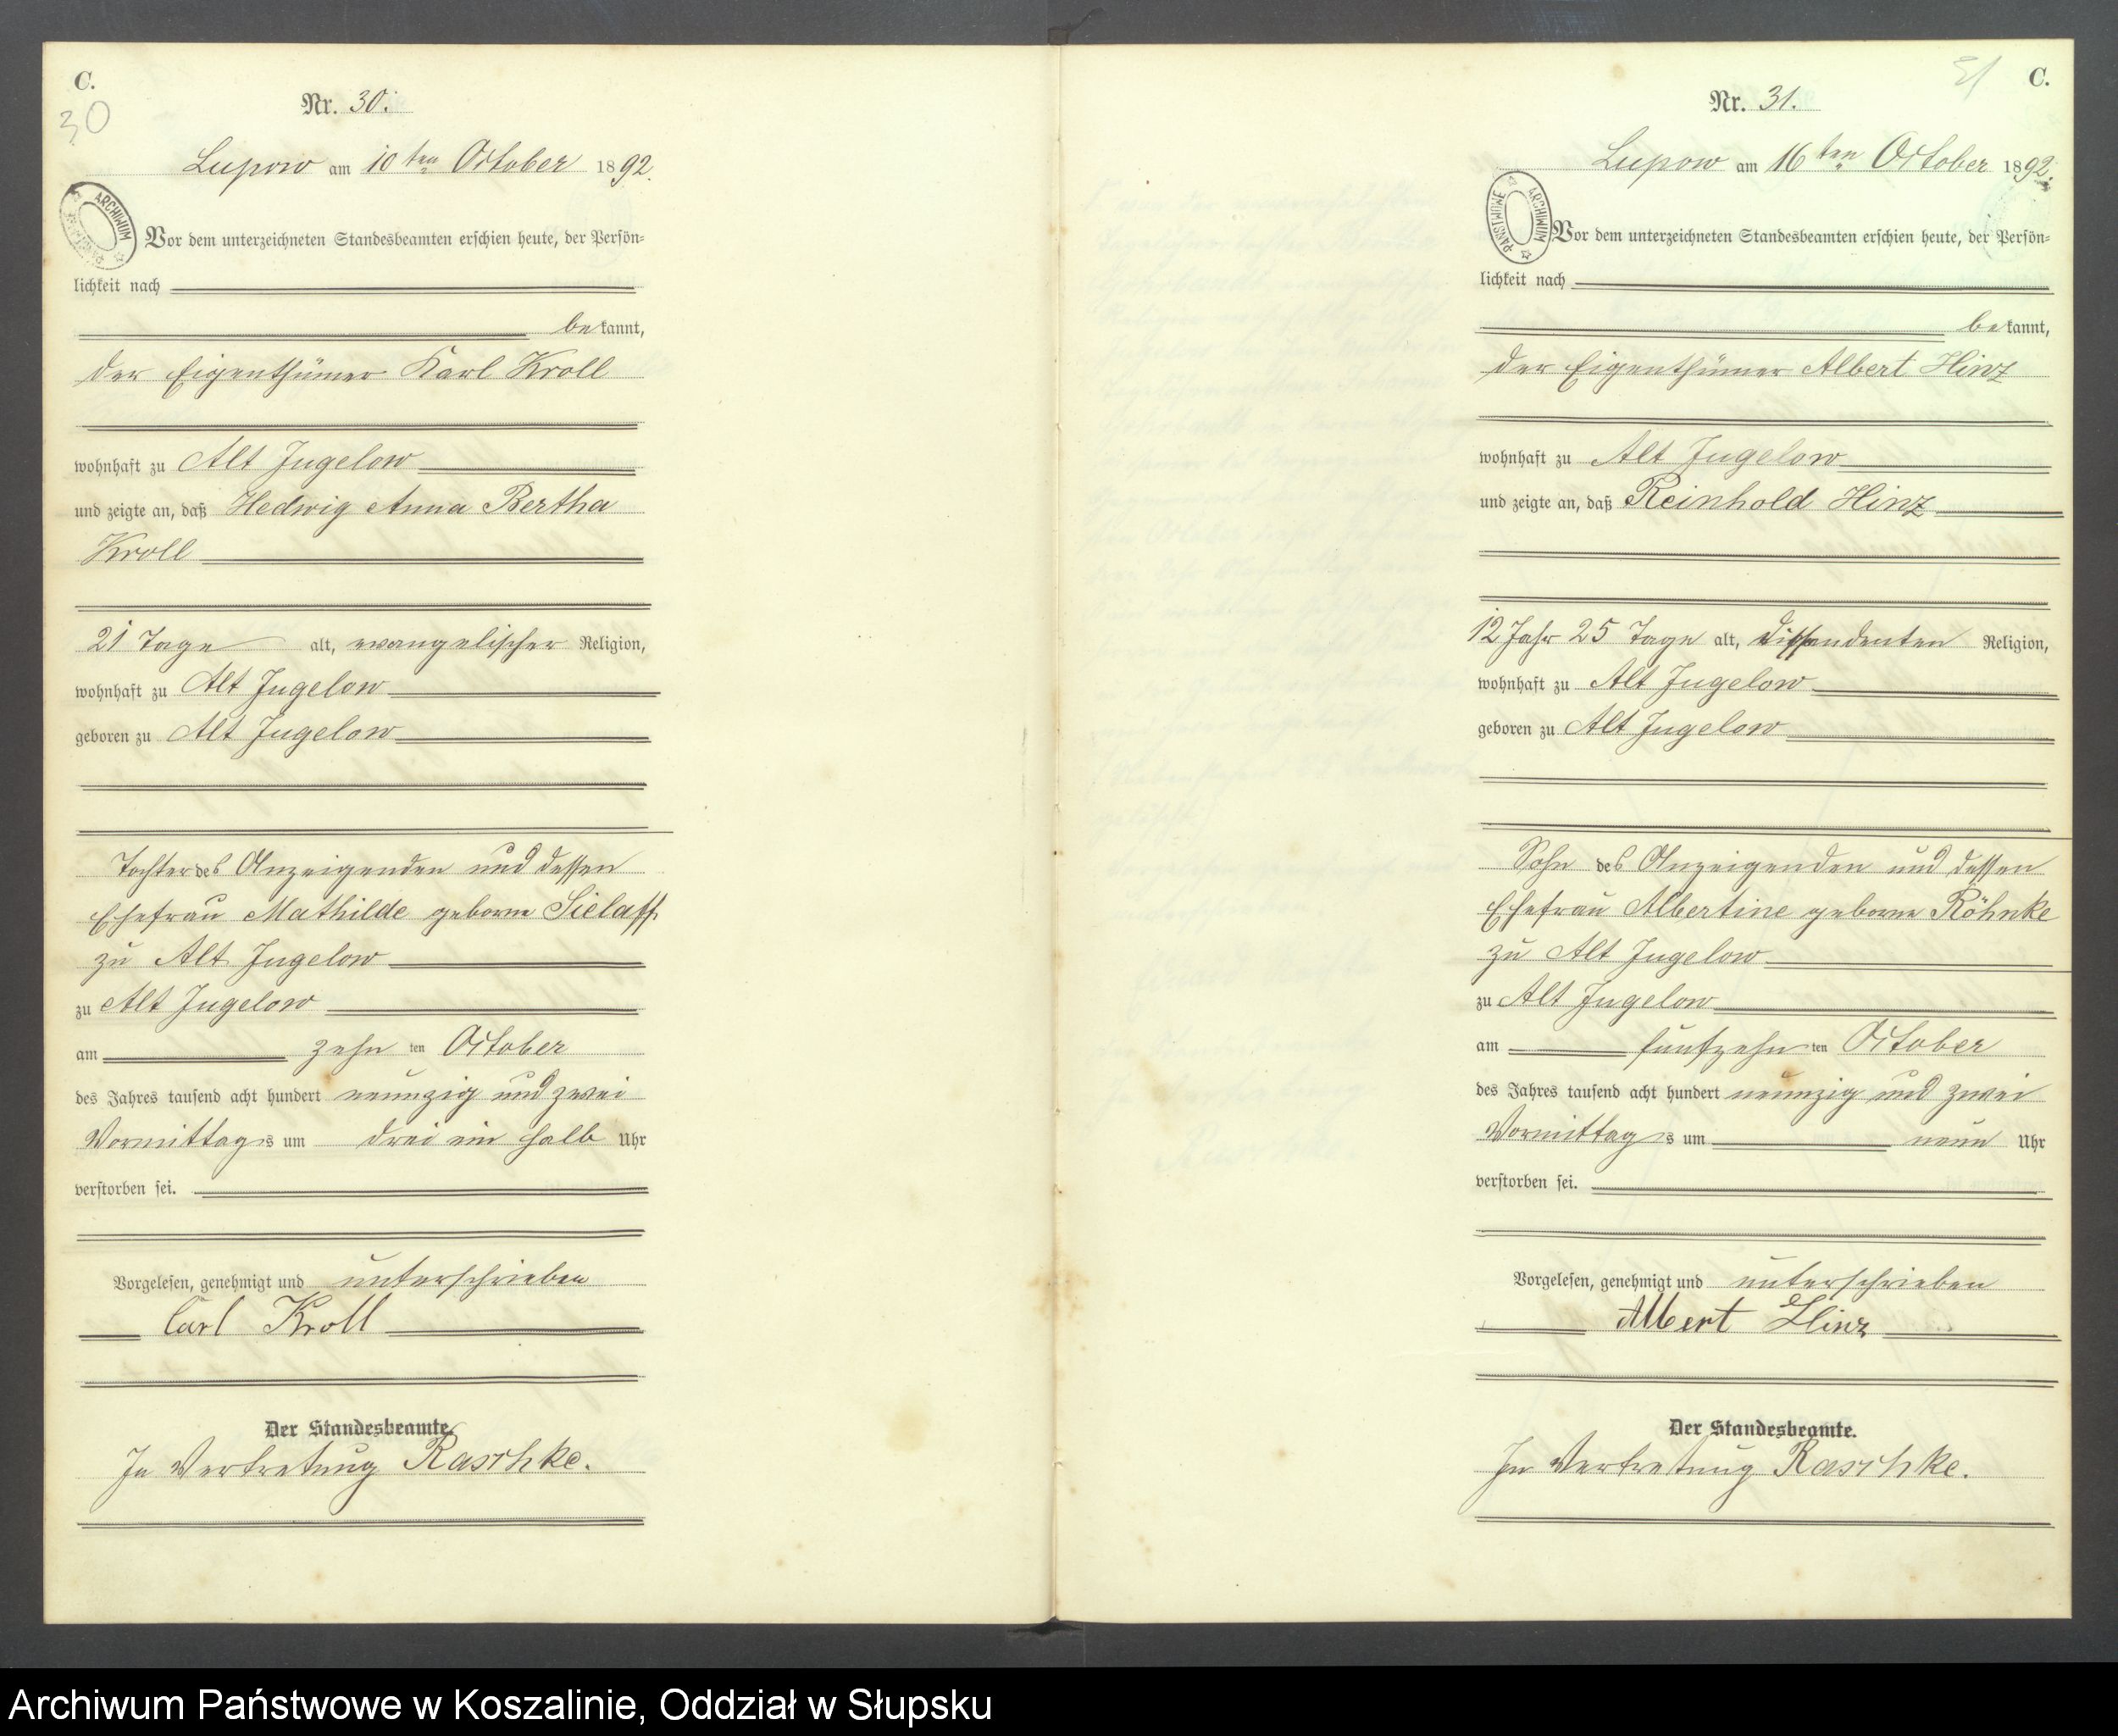 C.
30
Nr. 30.
Lupow am 10ten October 1892.
ARCHIWUM PAŃSTWOWE
Vor dem unterzeichneten Standesbeamten erschien heute, der Persön=
lichkeit nach
bekannt,
der Eigenthümer Karl Kroll
wohnhaft zu Alt Jugelow
und zeigte an, daß Hedwig Anna Bertha
Kroll
21 Tage alt, evangelischer Religion,
wohnhaft zu Alt Jugelow
geboren zu Alt Jugelow
Tochter des Anzeigenden und dessen
Ehefrau Mathilde geborne Sielaff
zu Alt Jugelow
zu Alt Jugelow
am zehn ten October
des Jahres tausend acht hundert neunzig und zwei
Vormittags um drei ein halb Uhr
verstorben sei.
Vorgelesen, genehmigt und unterschrieben
Carl Kroll
Der Standesbeamte.
In Vertretung Raschke.
31
C.
Nr. 31.
Lupow am 16ten October 1892.
ARCHIWUM PAŃSTWOWE
Vor dem unterzeichneten Standesbeamten erschien heute, der Persön=
lichkeit nach
bekannt,
der Eigenthümer Albert Hinz
wohnhaft zu Alt Jugelow
und zeigte an, daß Reinhold Hinz
12 Jahr 25 Tage alt, dissendenten Religion,
wohnhaft zu Alt Jugelow
geboren zu Alt Jugelow
Sohn des Anzeigenden und dessen
Ehefrau Albertine geborne Röhnke
zu Alt Jugelow
zu Alt Jugelow
am fünfzehn ten October
des Jahres tausend acht hundert neunzig und zwei
Vormittags um neun Uhr
verstorben sei.
Vorgelesen, genehmigt und unterschrieben
Albert Hinz
Der Standesbeamte.
In Vertretung Raschke.
Archiwum Państwowe w Koszalinie, Oddział w Słupsku